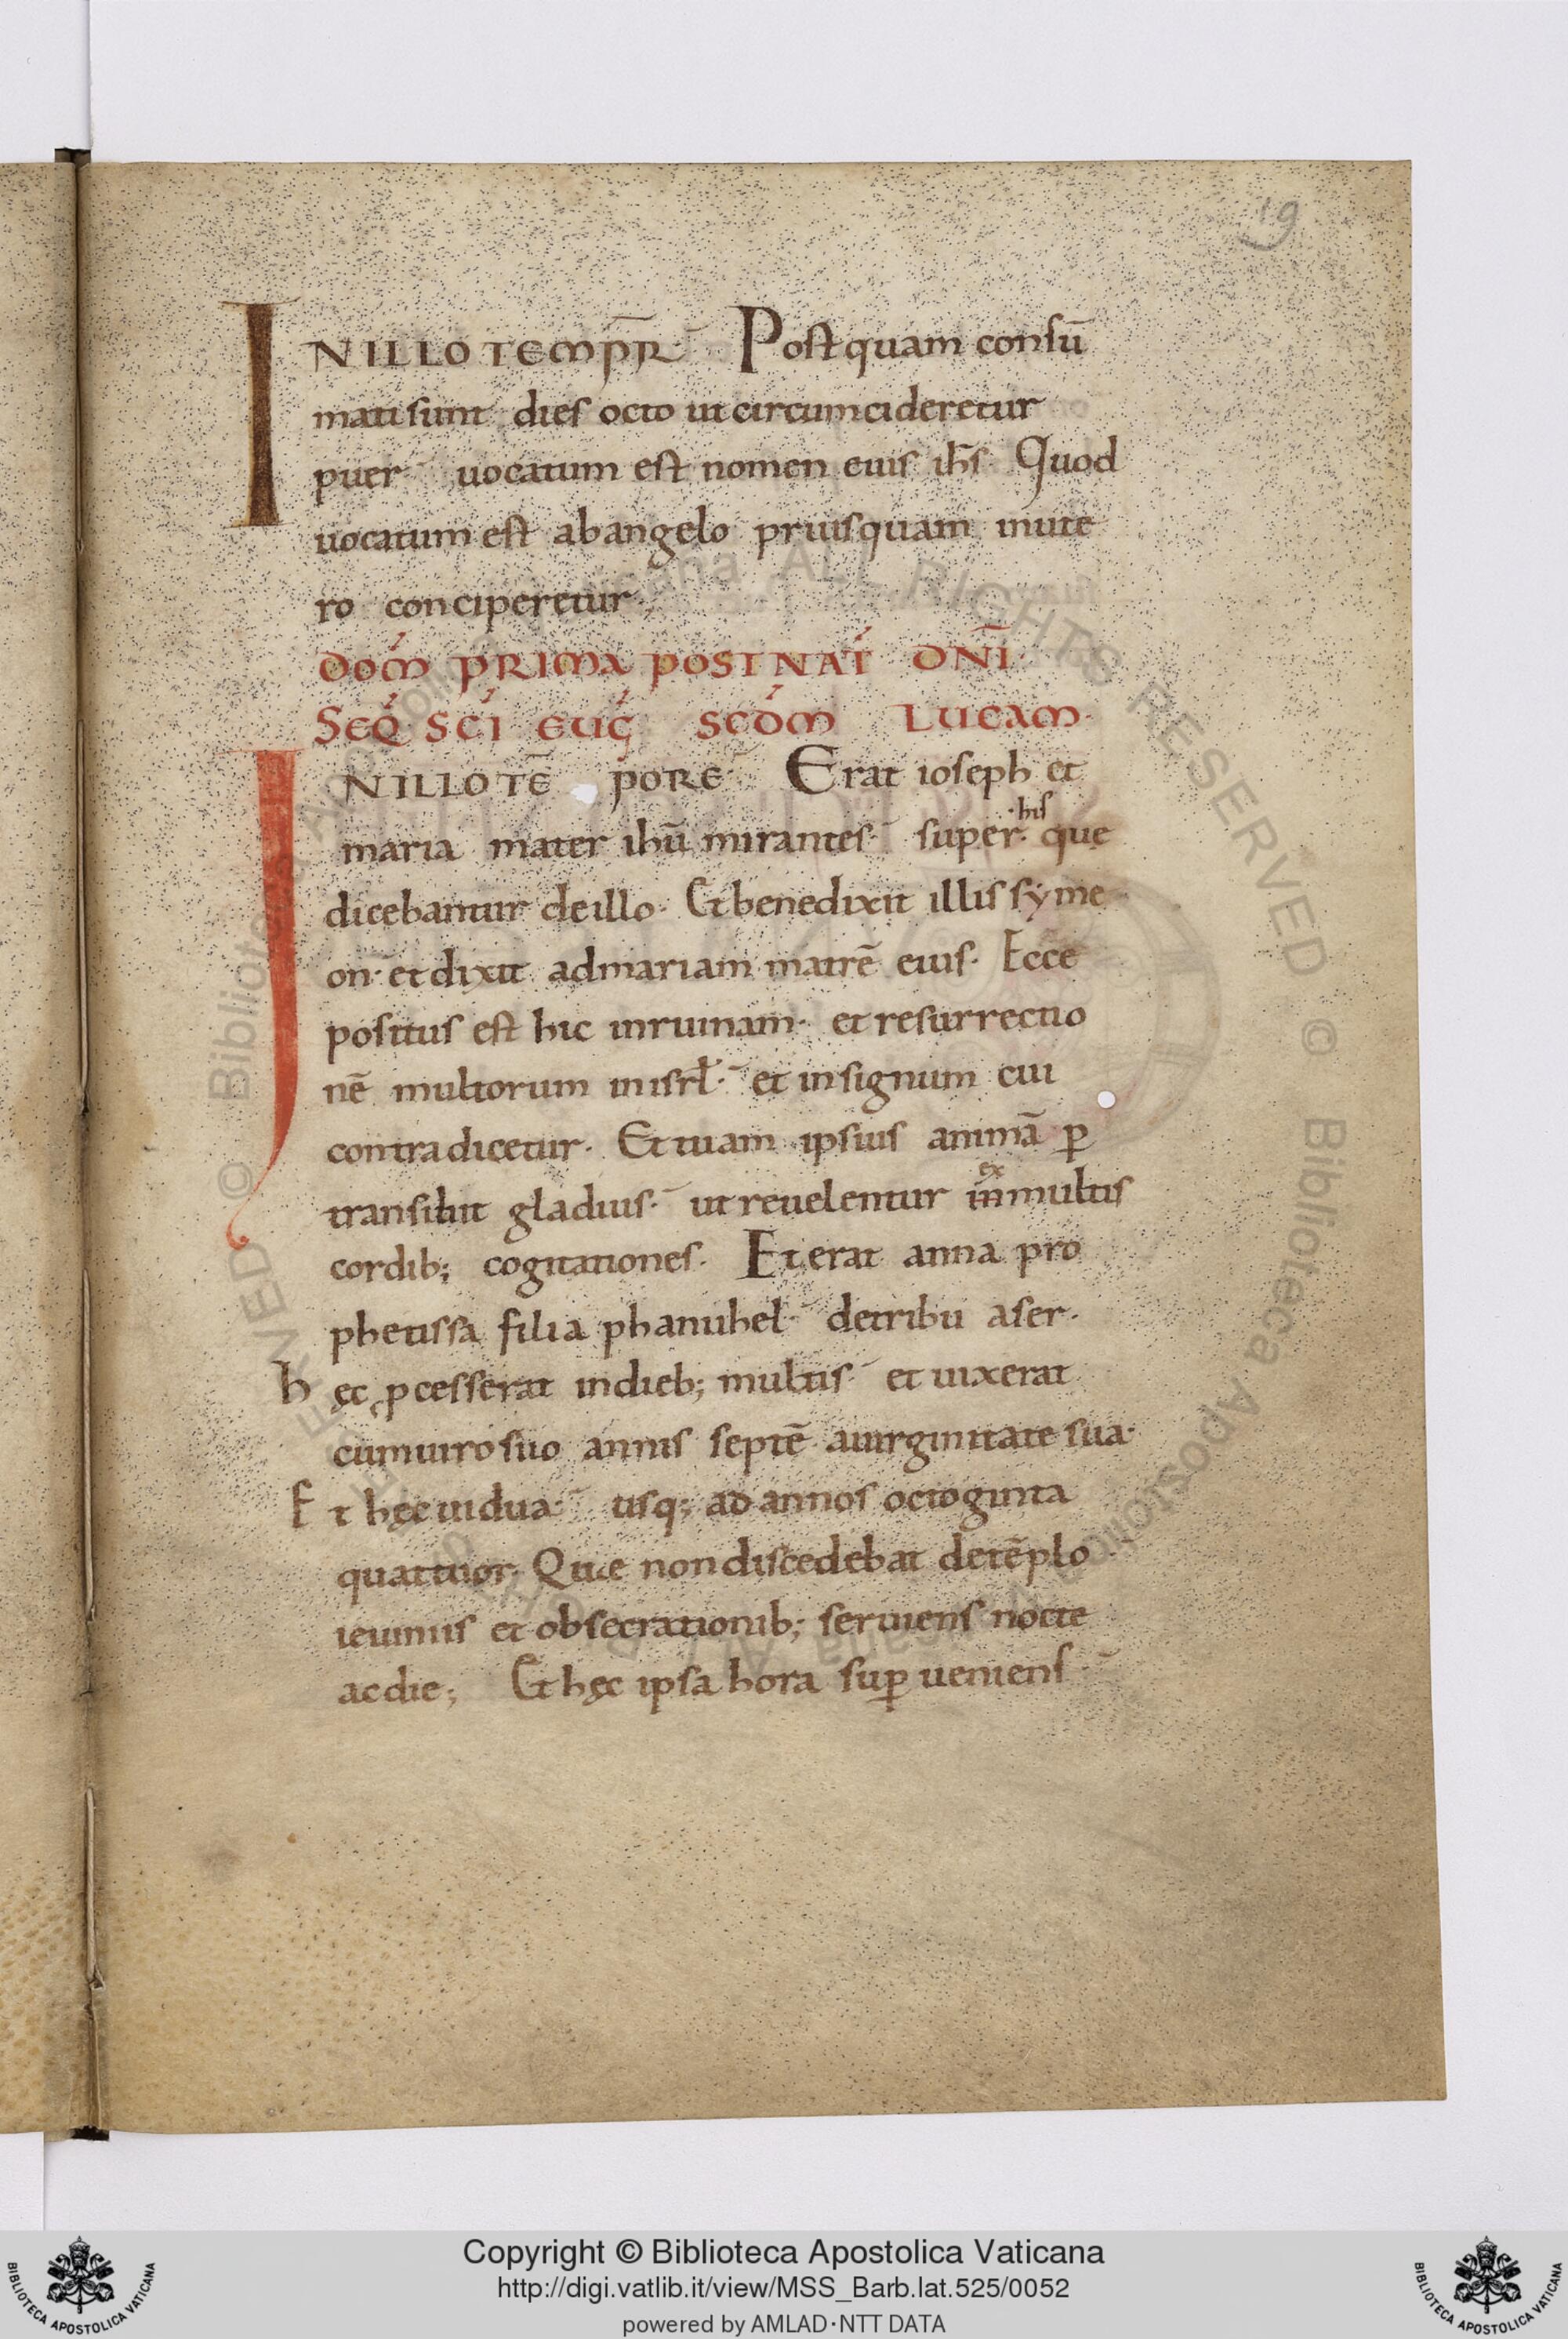 19
IN ILLO TEMPR̄· Postquam consū
mati sunt dies octo ut circumcideretur
puer· uocatum est nomen eius ih̄s· Quod
uocatum est ab angelo priusquam inute
ro conciperetur·
DOḾ PRIMA POST NAT́ DN̄I·
SEQ́ SCÍ EUǴ SCD́M LUCAM·
IN ILLO TĒ PORE· Erat ioseph et
maria mater ihū mirantes· super· ·his que
dicebantur de illo· Et benedixit illis syme
on· et dixit ad mariam matrē eius· Ecce
positus est hic in ruinam· et resurrectio
nē multorum in isrł· et in signum cui
contradicetur· Et tuam ipsius animā ꝑ
transibit gladius· ut reuelentur in ex multis
cordib; cogitationes· Et erat anna pro
phetissa filia phanuhel· de tribu aser·
hęc ꝓcesserat in dieb; multis· et uixerat
cum uiro suo annis septē a uirginitate sua·
Et hęc uidua· usq; ad annos octoginta
quattuor· Quae non discedebat de tēplo
ieiuniis et obsecrationib; seruiens nocte
ac die; Et hęc ipsa hora suꝑ ueniens·
© Biblioteca Apostolica Vaticana ALL RIGHTS RESERVED © Biblioteca Apostolica Vaticana ALL RIGHTS RESERVED
Copyright © Biblioteca Apostolica Vaticana
http://digi.vatlib.it/view/MSS_Barb.lat.525/0052
powered by AMLAD·NTT DATA
BIBLIOTECA APOSTOLICA VATICANA
BIBLIOTECA APOSTOLICA VATICANA